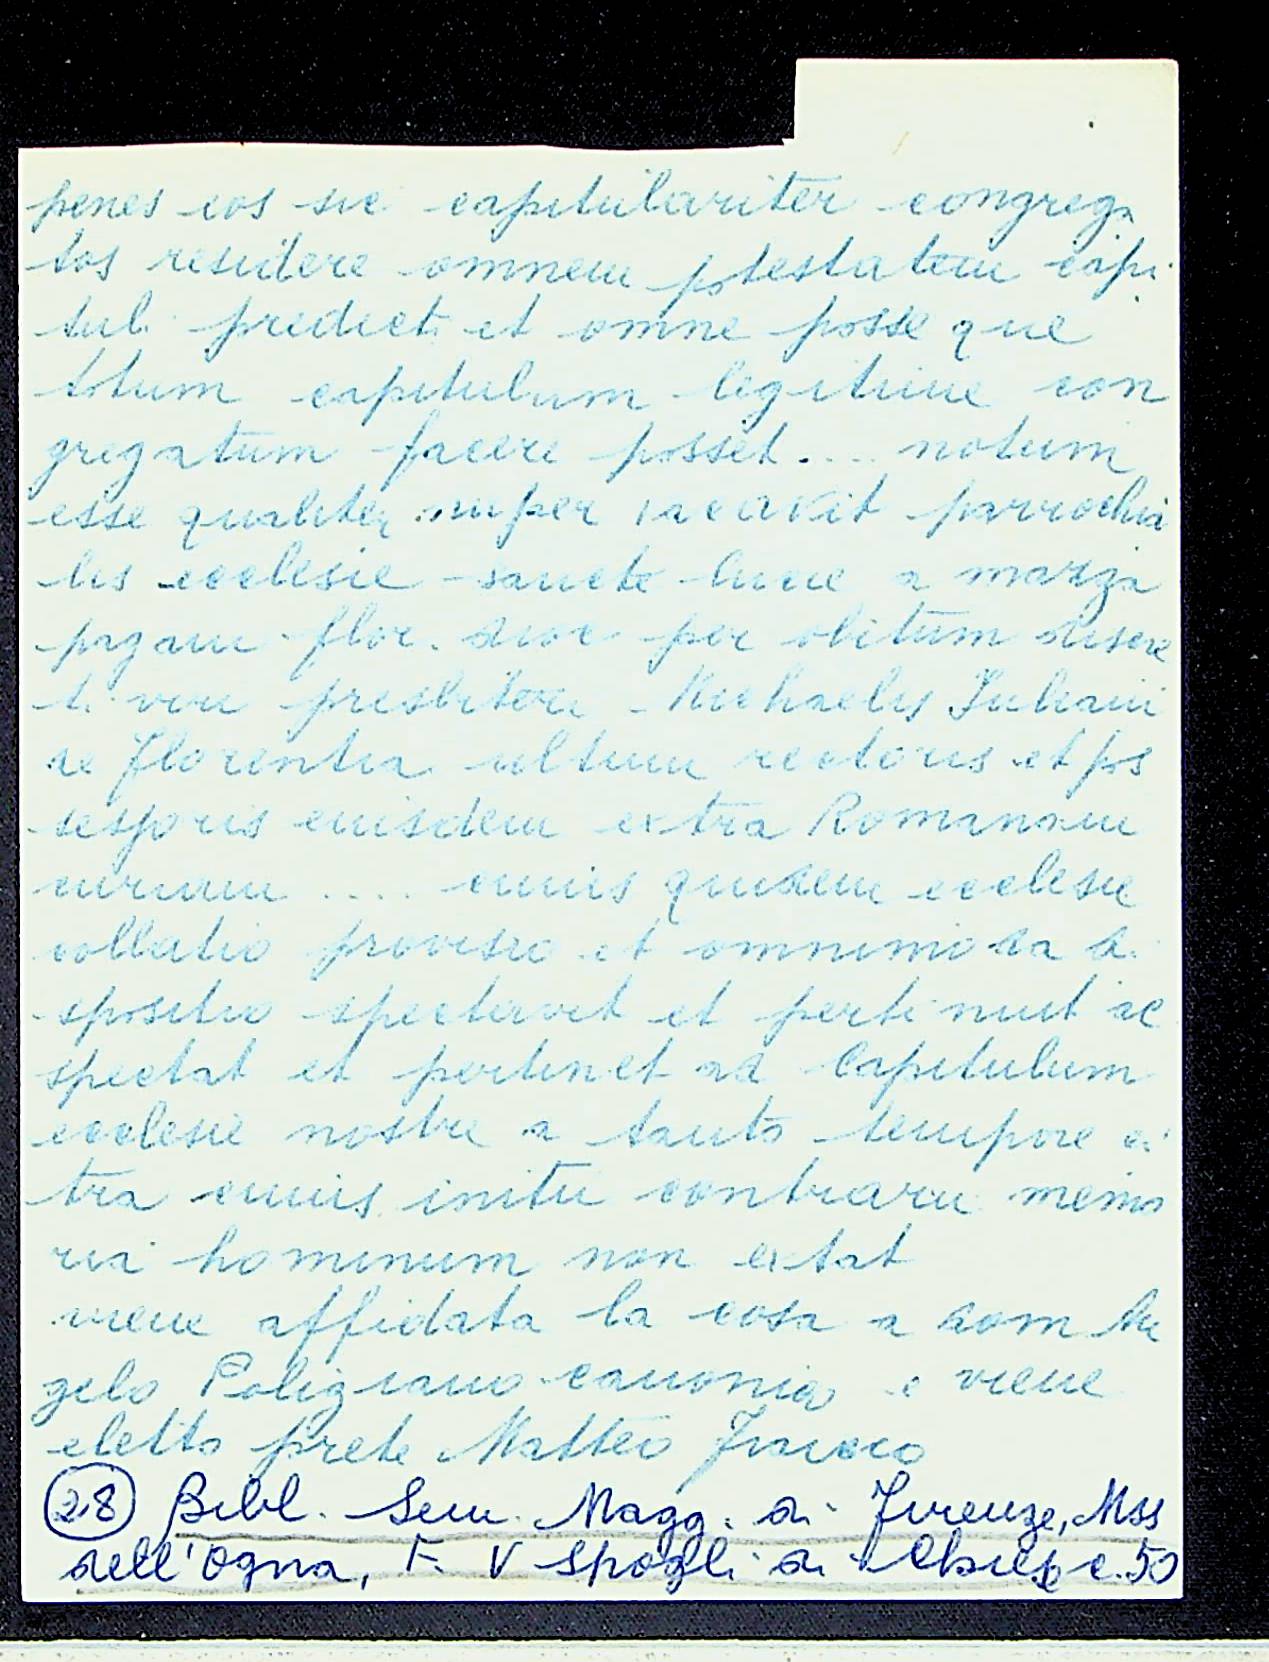 penes eos sic capitulariter congrega
tos residere omnem potestatem capi
tuli predicti et omne posse que
totum capitulum legitime con
gregatum facere posset .... notum
esse qualiter nuper vacavit parrochia
lis ecclesie sancte lucie a mazza
pagani flor. dioc per obitum discre
ti viri presbiteri Michaelis Juliani
de Florentia ultimi rectoris et pos
sessoris eiusdem extra Romanam
curiam .... cuius quidem ecclesie
collatio provisio et omnimoda di
spositio spectavit et pertinuit ac
spectat et pertinet ad Capitulum
ecclesie nostre a tanto tempore ci
tra cuius initii contrarii memo
ria hominum non extat
viene affidata la cosa a dom An
gelo Poliziano canonico e viene
eletto prete Matteo
(28) Bibl. Sem. Magg. di Firenze, Mss
dell'Ogna, F. V Spogli di c. 50